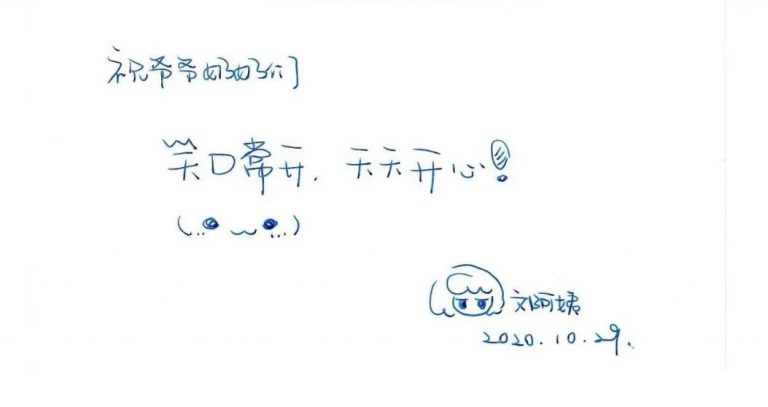 祝爷爷奶奶们
笑口常开，天天开心！
刘阿姨
2020.10.29.